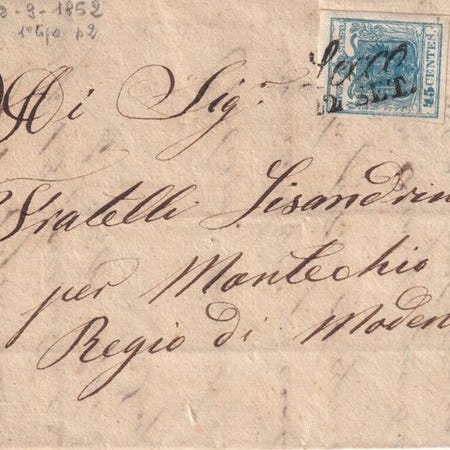 2-9-1852
1° tipo p2
45 CENTES.
12 SET.
Ai Sig.ri
Fratelli Lisandrin
per Montechio
Regio di Moden